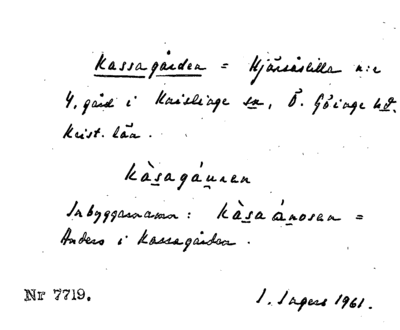 Kassagården = Hjärsåslilla n:r
4, gård i Knislinge sn, Ö. Göinge hd.
Krist. län.
Kàsagáunen
Inbyggarnamn: Kàsaánosen =
Anders i Kassagården.
Nr 7719.
I. Ingers 1961.